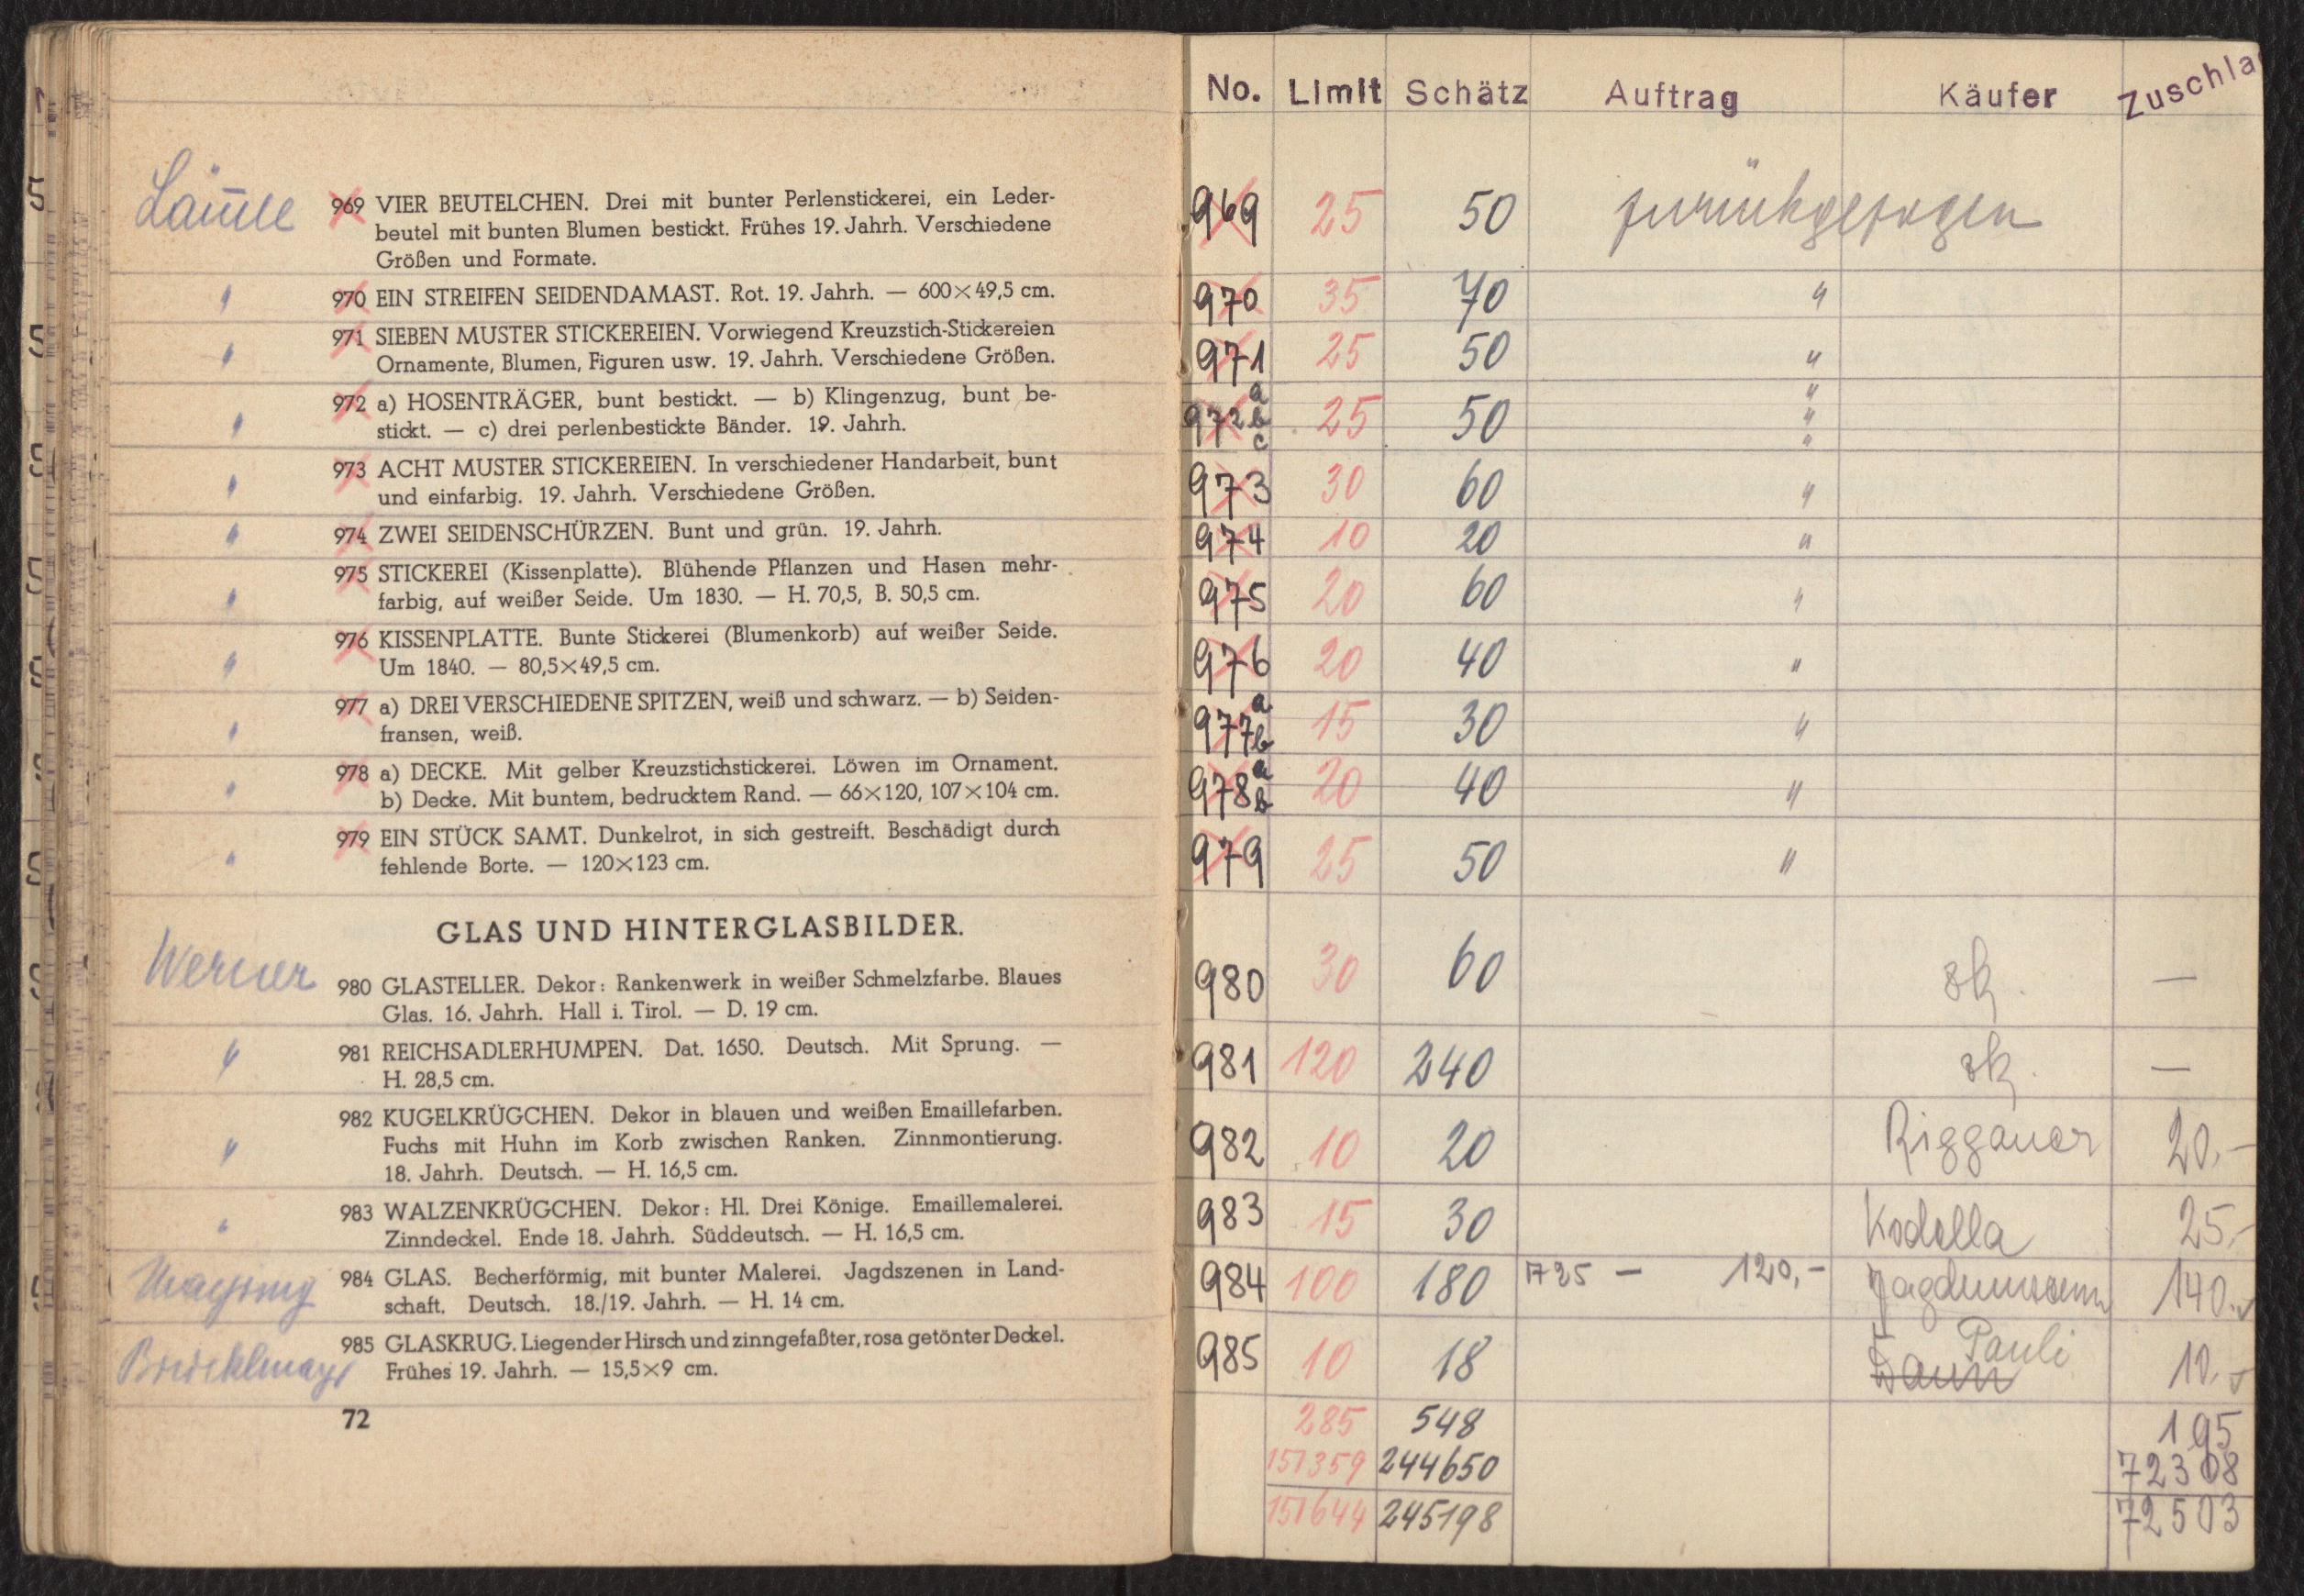 Lämle
969 VIER BEUTELCHEN. Drei mit bunter Perlenstickerei, ein Leder-
beutel mit bunten Blumen bestickt. Frühes 19. Jahrh. Verschiedene
Größen und Formate.
" 970 EIN STREIFEN SEIDENDAMAST. Rot. 19. Jahrh. — 600×49,5 cm.
" 971 SIEBEN MUSTER STICKEREIEN. Vorwiegend Kreuzstich-Stickereien
Ornamente, Blumen, Figuren usw. 19. Jahrh. Verschiedene Größen.
" 972 a) HOSENTRÄGER, bunt bestickt. — b) Klingenzug, bunt be-
stickt. — c) drei perlenbestickte Bänder. 19. Jahrh.
" 973 ACHT MUSTER STICKEREIEN. In verschiedener Handarbeit, bunt
und einfarbig. 19. Jahrh. Verschiedene Größen.
" 974 ZWEI SEIDENSCHÜRZEN. Bunt und grün. 19. Jahrh.
" 975 STICKEREI (Kissenplatte). Blühende Pflanzen und Hasen mehr-
farbig, auf weißer Seide. Um 1830. — H. 70,5, B. 50,5 cm.
" 976 KISSENPLATTE. Bunte Stickerei (Blumenkorb) auf weißer Seide.
Um 1840. — 80,5×49,5 cm.
" 977 a) DREI VERSCHIEDENE SPITZEN, weiß und schwarz. — b) Seiden-
fransen, weiß.
" 978 a) DECKE. Mit gelber Kreuzstichstickerei. Löwen im Ornament.
b) Decke. Mit buntem, bedrucktem Rand. — 66×120, 107×104 cm.
" 979 EIN STÜCK SAMT. Dunkelrot, in sich gestreift. Beschädigt durch
fehlende Borte. — 120×123 cm.
GLAS UND HINTERGLASBILDER.
Werner
980 GLASTELLER. Dekor: Rankenwerk in weißer Schmelzfarbe. Blaues
Glas. 16. Jahrh. Hall i. Tirol. — D. 19 cm.
" 981 REICHSADLERHUMPEN. Dat. 1650. Deutsch. Mit Sprung. —
H. 28,5 cm.
" 982 KUGELKRÜGCHEN. Dekor in blauen und weißen Emaillefarben.
Fuchs mit Huhn im Korb zwischen Ranken. Zinnmontierung.
18. Jahrh. Deutsch. — H. 16,5 cm.
" 983 WALZENKRÜGCHEN. Dekor: Hl. Drei Könige. Emaillemalerei.
Zinndeckel. Ende 18. Jahrh. Süddeutsch. — H. 16,5 cm.
984 GLAS. Becherförmig, mit bunter Malerei. Jagdszenen in Land-
schaft. Deutsch. 18./19. Jahrh. — H. 14 cm.
985 GLASKRUG. Liegender Hirsch und zinngefaßter, rosa getönter Deckel.
Frühes 19. Jahrh. — 15,5×9 cm.
72
No. Limit Schätz Auftrag Käufer Zuschla
969 25 50 zurückgezogen
970 35 70 "
971 25 50 "
972 a b c 25 50 " " "
973 30 60 "
974 10 20 "
975 20 60 "
976 20 40 "
977 a b 15 30 "
978 a b 20 40 "
979 25 50 "
980 30 60 zk. —
981 120 240 zk. —
982 10 20 Riggauer 20.-
983 15 30 Kodella 25.-
984 100 180 725 — 120,- 140.
985 10 18 Pauli 10.
285 548 195
151359 244650 72308
151644 245198 72503